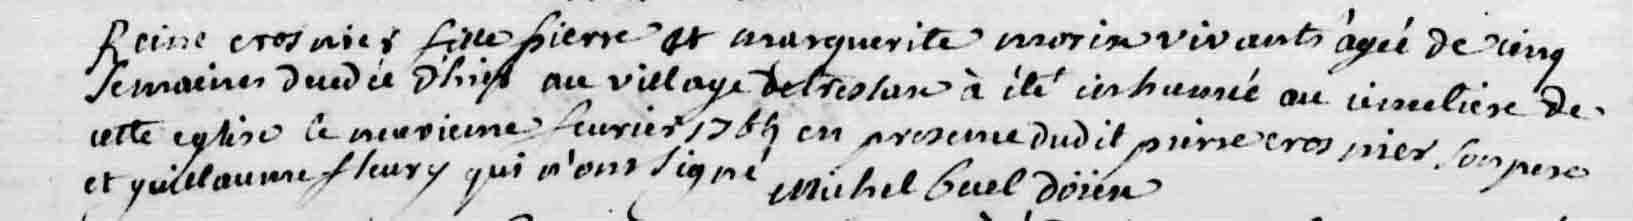 Reine crosnier fille pierre et marguerite morin vivants âgéé de cinq
semaines decedée d'hier au village de trestan à été inhumée au cimetiere de
cette eglise le neuvieme fevrier 1765 en presence dudit pierre crosnier son pere
et guillaume fleury qui n'ont signé Michel Guel doien